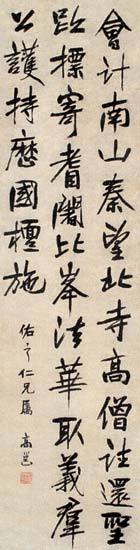 會計南山秦望北寺高僧註還聖
跡標寄耆闍比峯法華取義群
公護持歷國檀施
佑之仁兄屬 高邕